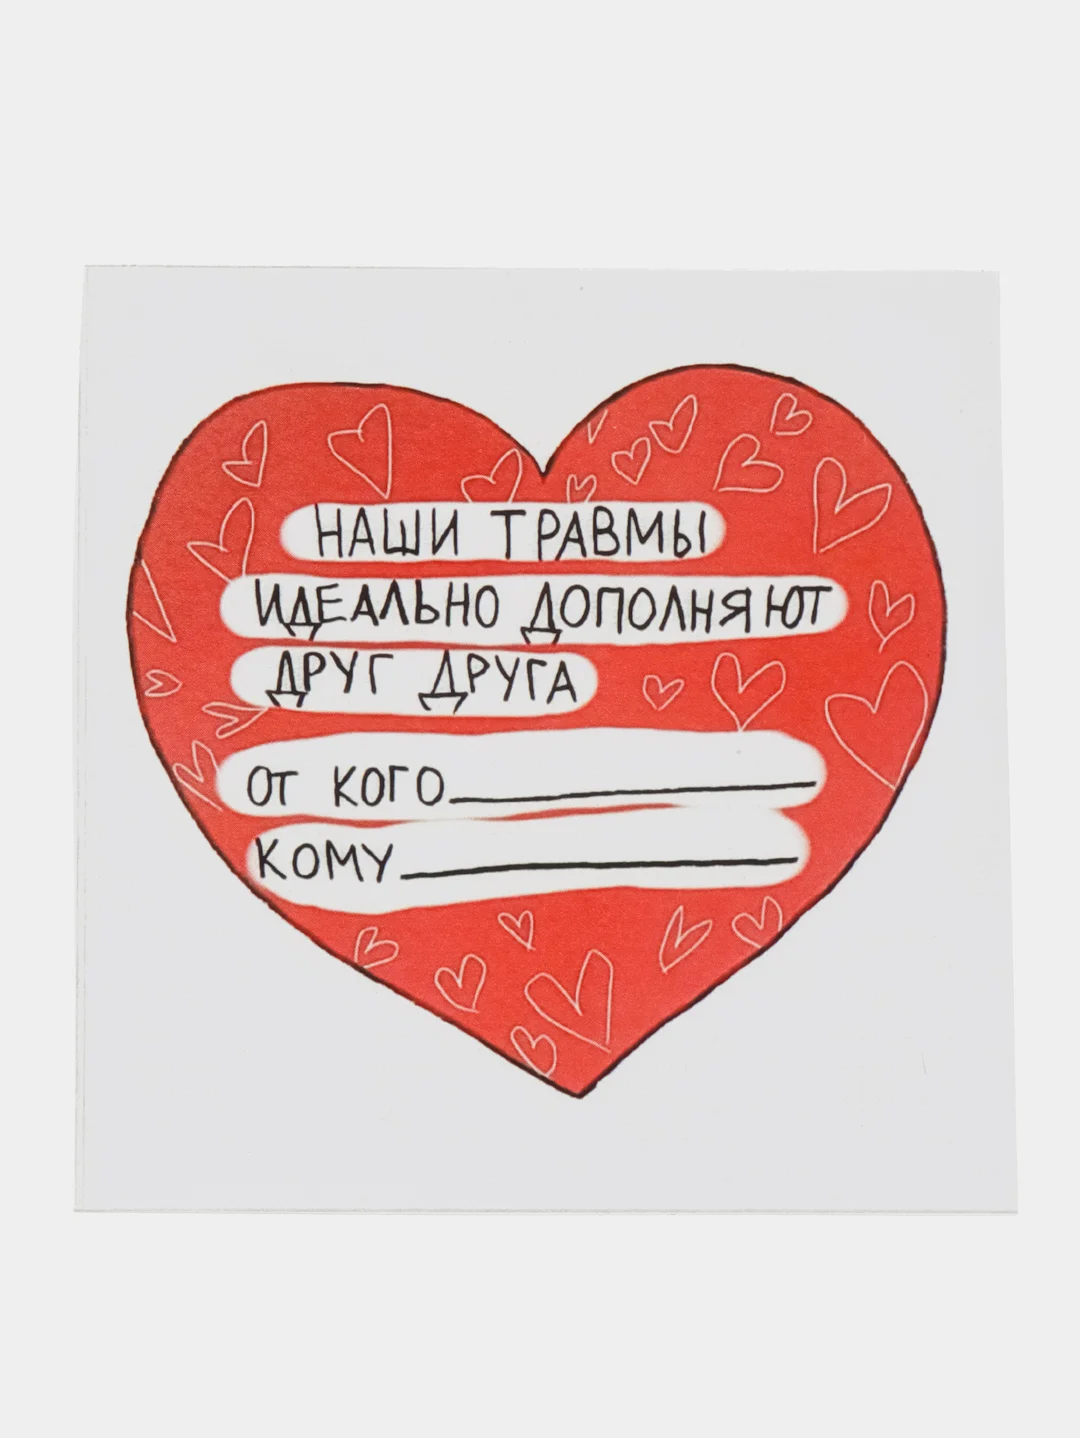 НАШИ ТРАВМЫ
ИДЕАЛЬНО ДОПОЛНЯЮТ
ДРУГ ДРУГА
ОТ КОГО
КОМУ